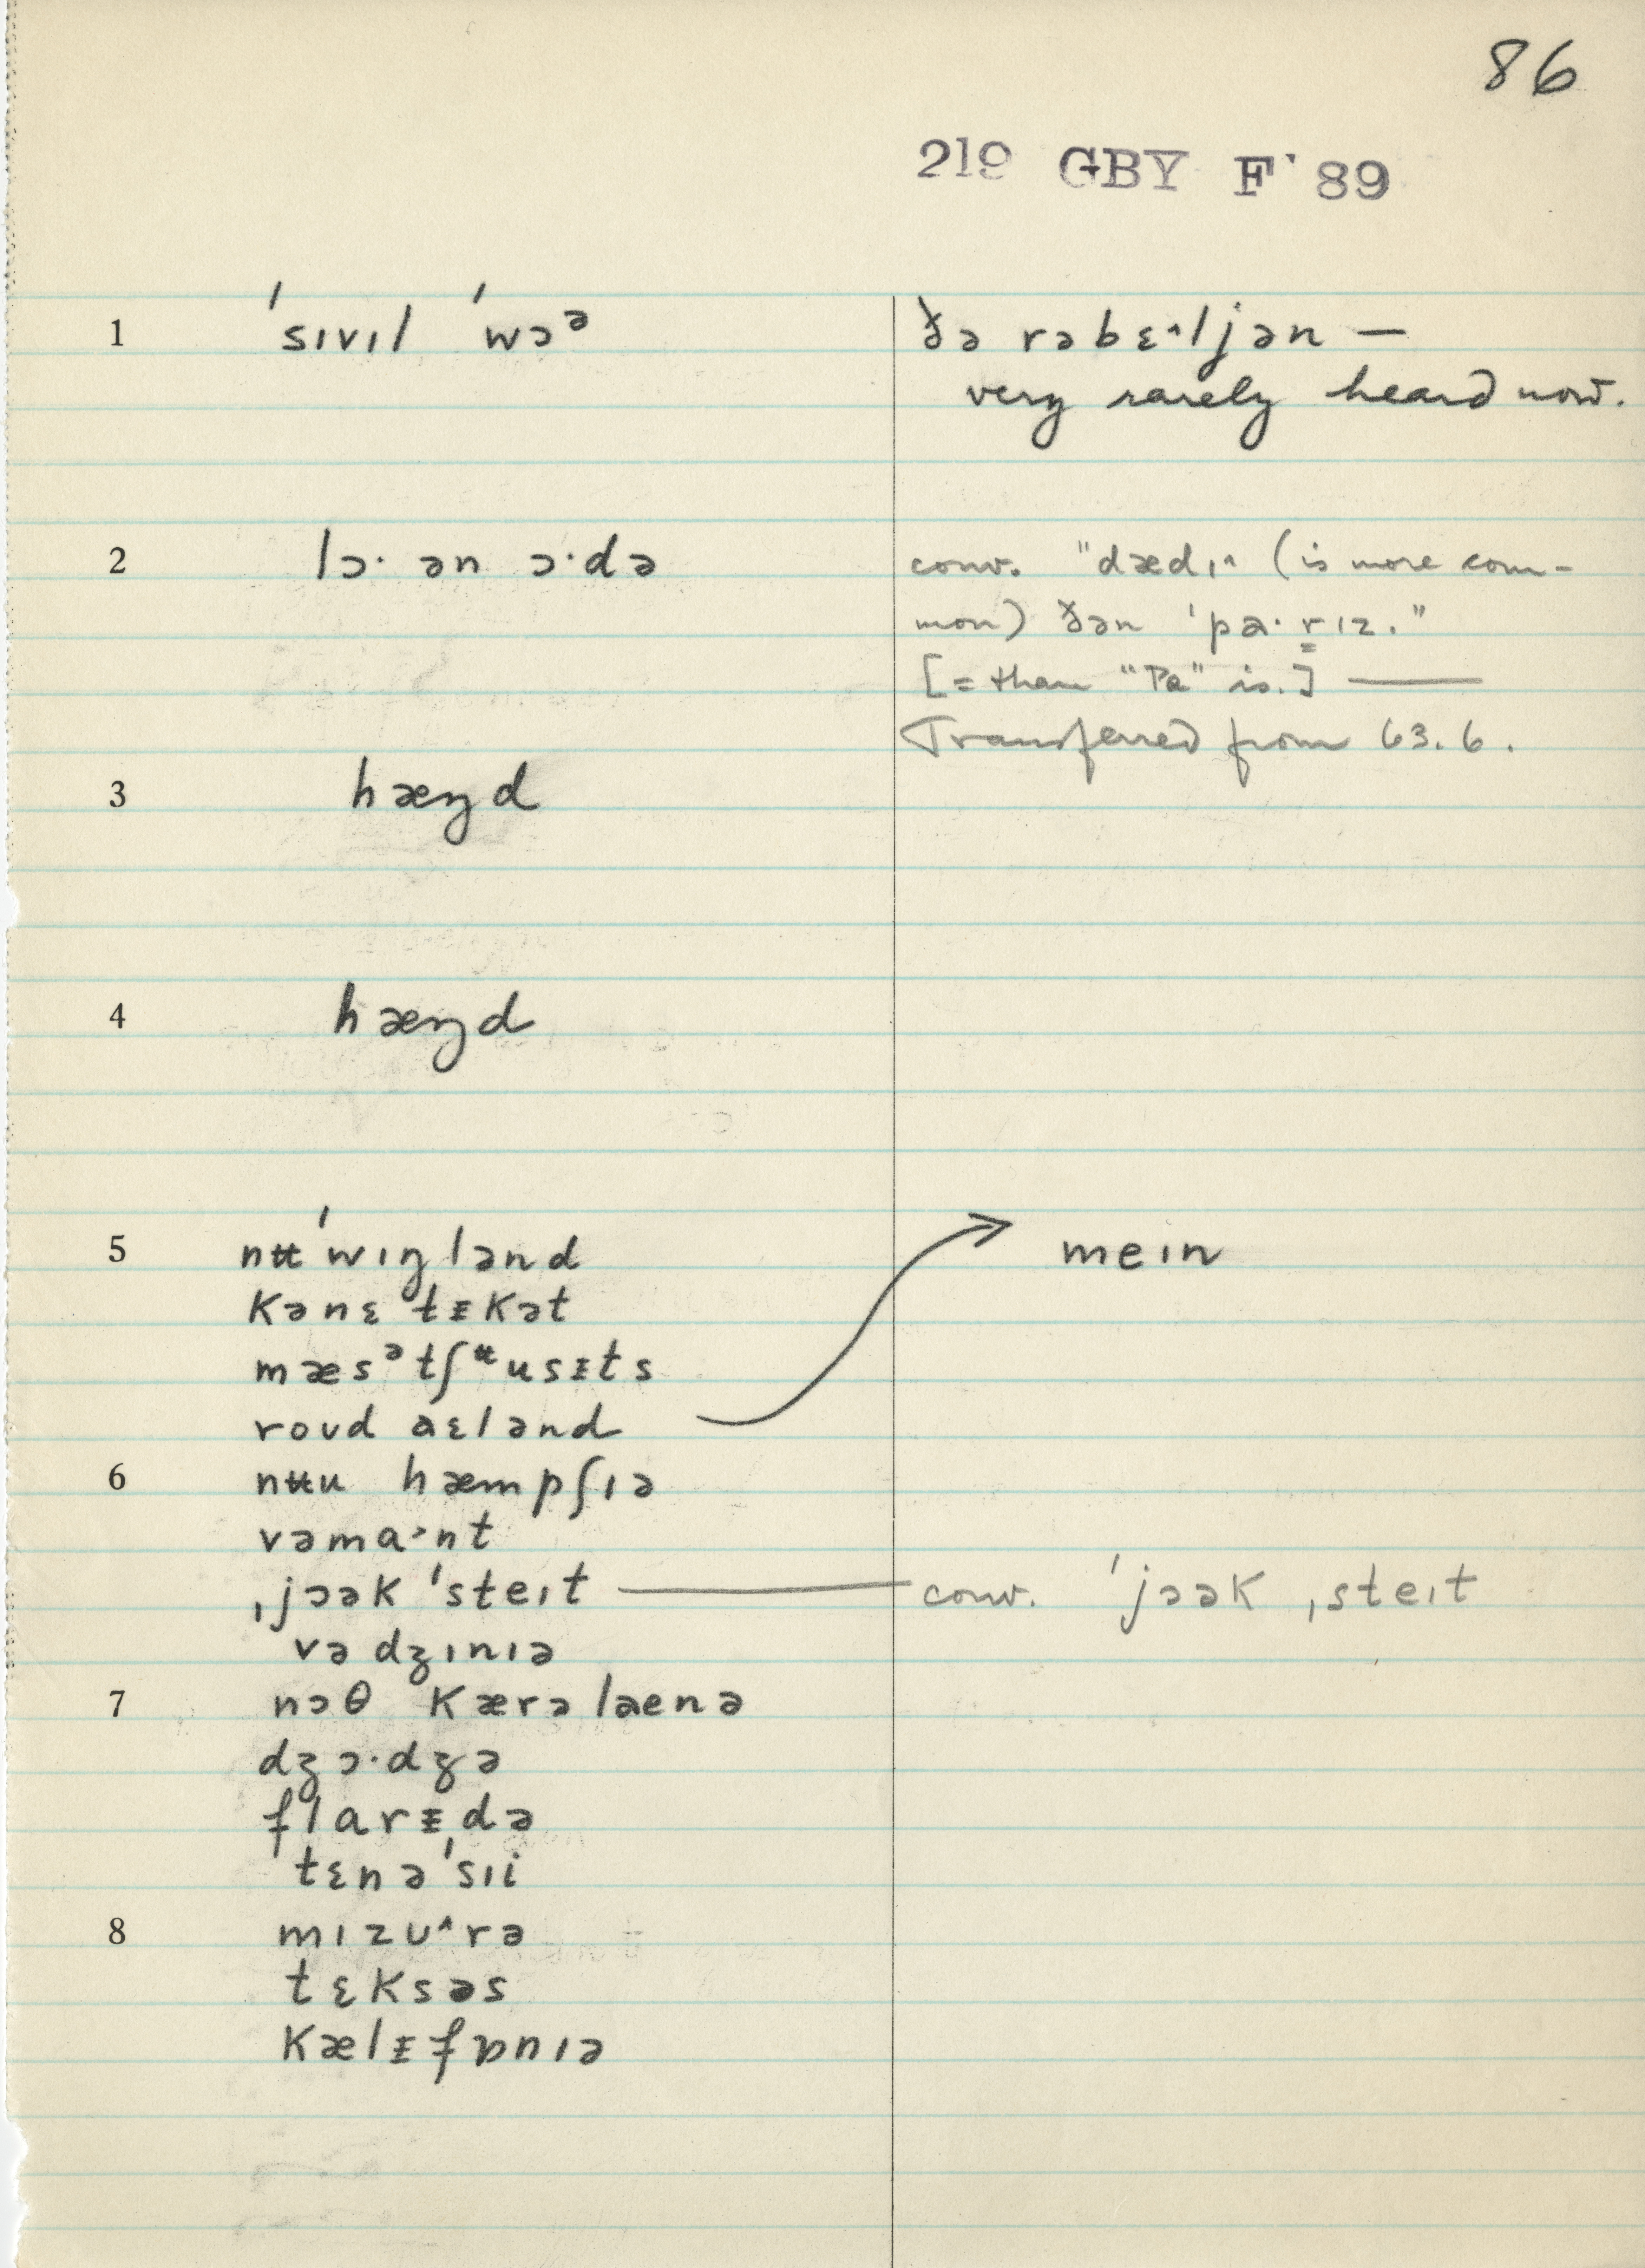 86
219 GBY F' 89
1 ˈsɪvɪl ˈwɔᵊ
ðə rəbɛ˄ljən —
very rarely heard now.
2 lɔ· ən ɔ·də
conv. "dædɪ˄ (is more com-
mon) ðən ˈpa· r̳ɪz."
[= than "Pa" is.] —
Transferred from 63.6.
3 hæŋd
4 hæŋd
5 nʉˈwɪŋlənd
mein
kənɛˈtᵻkət
mæsᵊtʃᶶusᵻts
roʊd aɛlənd
6 nʉu hæmpʃɪə
vəma·nt
ˌjɔək ˈsteɪt — conv. ˈjɔək ˌsteɪt
və dʒɪnɪə
7 nɔθ kærəlaenə
dʒɔ·dʒə
flarᵻdə
ˈtɛnəˈsɪi
8 mɪzʊ˄rə
tɛksəs
kælᵻfɒnɪə